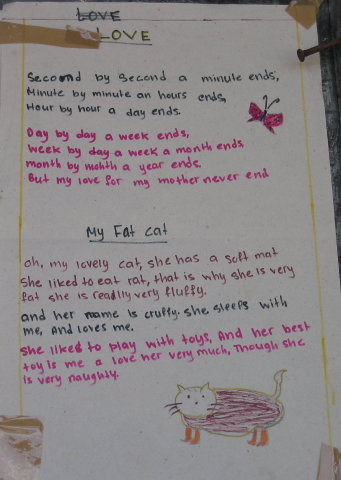 LOVE
LOVE
Second by Second a minute ends,
Minute by minute an hours ends,
Hour by hour a day ends.
Day by day a week ends,
week by day a week a month ends,
month by month a year ends.
But my love for my mother never end
My Fat cat
oh, my lovely cat, she has a soft mat
She liked to eat rat, that is why she is very
fat she is readlly very fluffy.
and her name is cruffy. she sleeps with
me, And loves me.
She liked to play with toys, And her best
toy is me a love her very much, Though she
is very naughty.